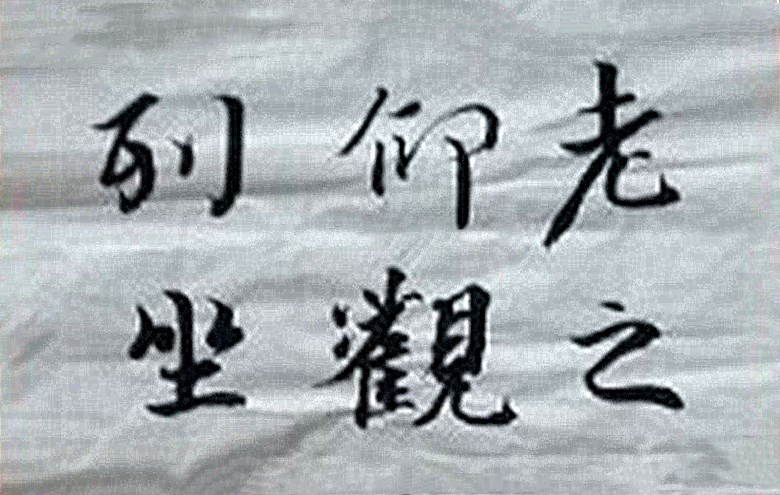 老之
仰觀
列坐